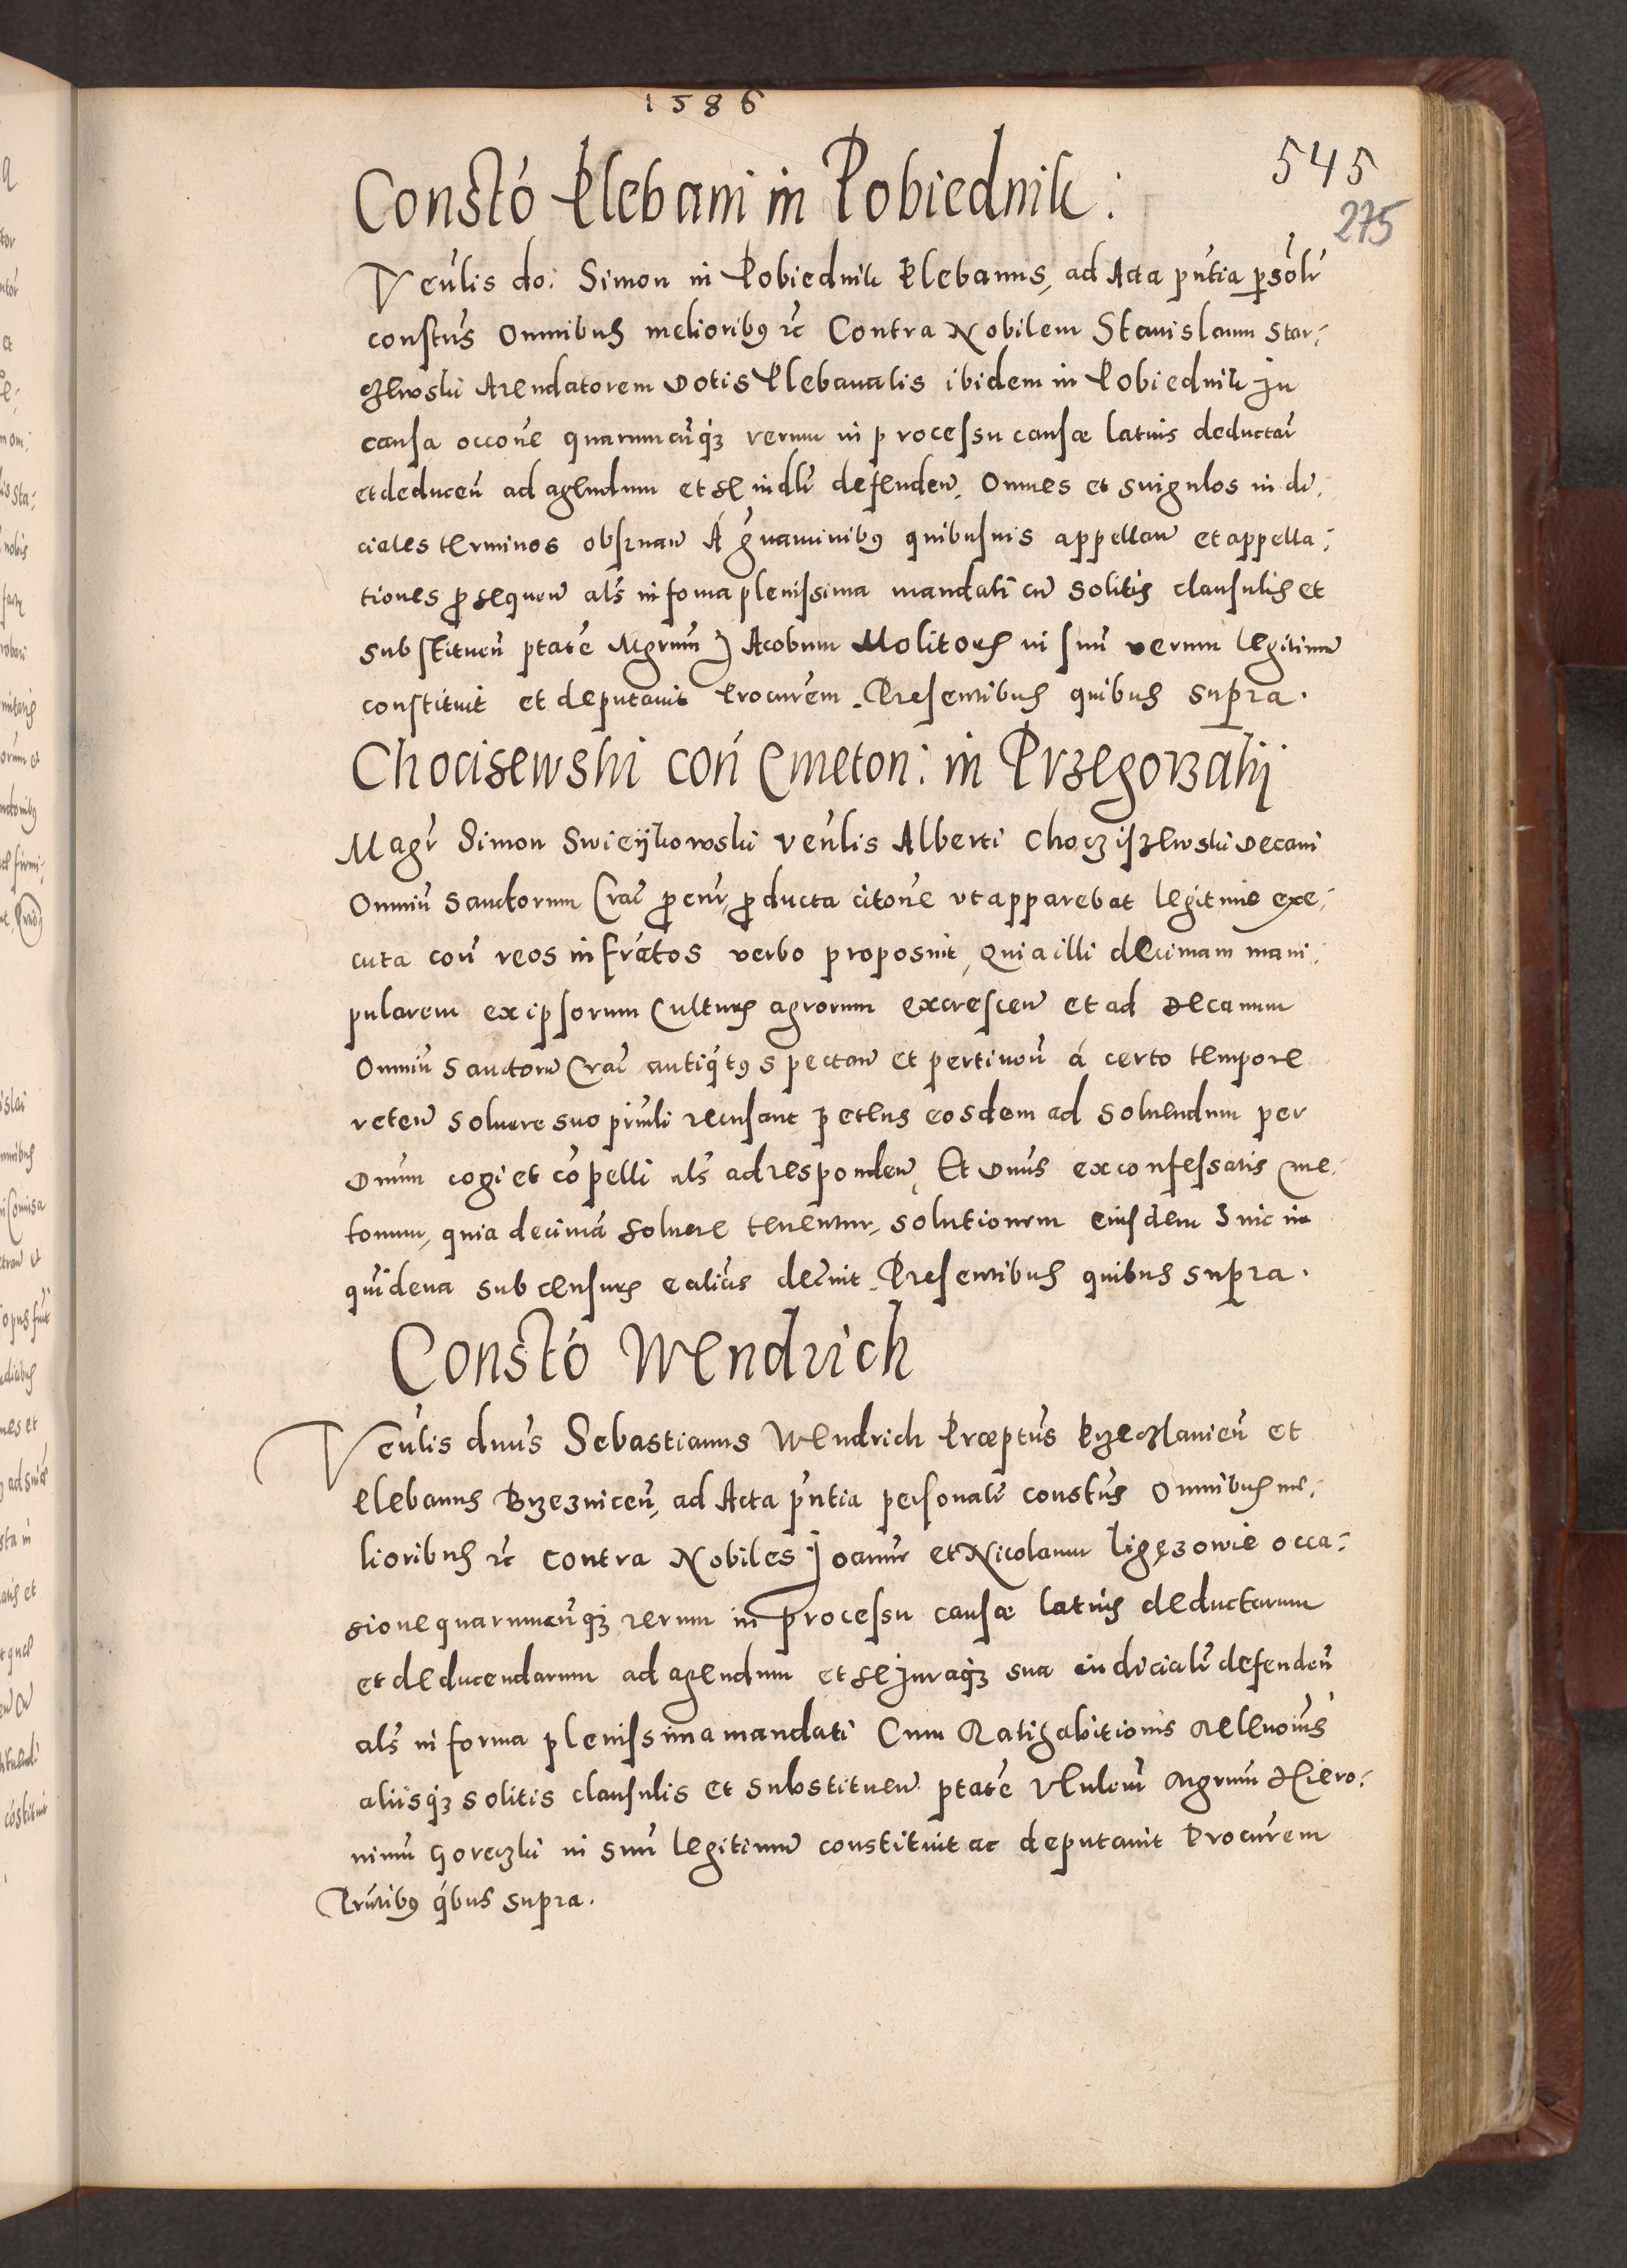 1586
545
275
Constó Plebani in Pobiednik:
Venĺis do: Simon in Pobiednik Plebanus, ad Acta pñtia p̱sólr
constus Omnibus melioribꝰ ꝛc Contra Nobilem Stanislaum Star:
czewski Arendatorem Dotis Plebanalis ibidem in Pobiednik In
causa occone quarumcuqꝫ rerum in processu causæ latius deductar
et deducen ad agendum et se indlr defenden, Omnes et singulos in di:
ciales terminos obsruan A gnaminibꝰ quibusuis appellan et appella:
tiones ꝓsequen als in foma plenissima mandati cu solitis clausulis et
substituen ptate Mgrum Jacobum Molitoris in suu verum legitimu
constituit et deputauit Procurem. Presentibus quibus supra.
Chocisewski con Cmeton: in Przegorzalij
Magr Simon Swieijkowski venlis Alberti Choczisżewski Decani
Omniu Sanctorum Crac ꝓcur, ꝓducta citone vt apparebat legitime exe:
cuta con reos infratos verbo proposuit, Quia illi decimam mani:
pularem ex ipsorum Culturis agrorum excrescen et ad Decanum
Omniu Sanctoru Crac antiqtꝰ spectan et pertinen á certo tempore
reten soluere suo priuli recusant petens eosdem ad soluendum per
Dnum cogi et copelli als ad responden, Et Dnus ex confessatis Cme:
tonum, quia decima soluere tenentur, solutionem eiusdem hinc in
quidena sub censuris ecalicis decnit. Presentibus quibus supra.
Constó Wendrich
Venlis dnus Sebastianus Wendrich Præptus Przeczlauien et
Plebanus Brzeznicen, ad Acta pñtia personalr constus Omnibus me:
lioribus ꝛc contra Nobiles Joannē et Nicolaum Ligęzowie occa:
sione quarumcuqꝫ rerum in processu causæ latius deductarum
et deducendarum ad agendum et se Juraqꝫ sua iudicialr defenden
als in forma plenissima mandati Cum Ratihabitionis Releuoius
aliisqꝫ solitis clausulis et substituen ptate Mgrum Hiero:
nimu Goreczki in suu legitimu constituit ac deputauit Procurem
Prntibꝰ qbus supra.